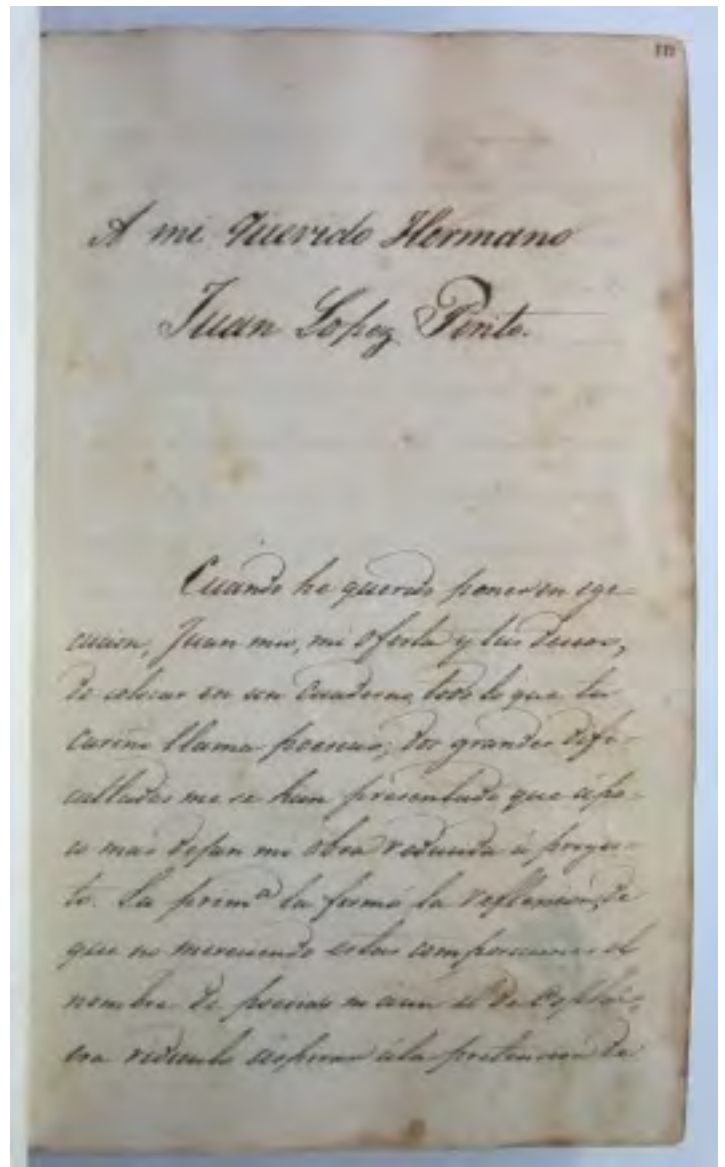 111
A mi querido Hermano
Juan Lopez Pinto.
Cuando he querido poner en ege-
cucion, Juan mio, mi oferta y tus deseos,
de colocar en un cuaderno, todo lo que tu
cariño llama poesias; dos grandes difi-
cultades me se han presentado que á po-
co mas dejan mi obra reducida á proyec-
to. La prim.ª la formó la reflexión, de
que no mereciendo estas composiciones el
nombre de poesias ni aun el de coplas,
era ridiculo aspirar á la pretencion de